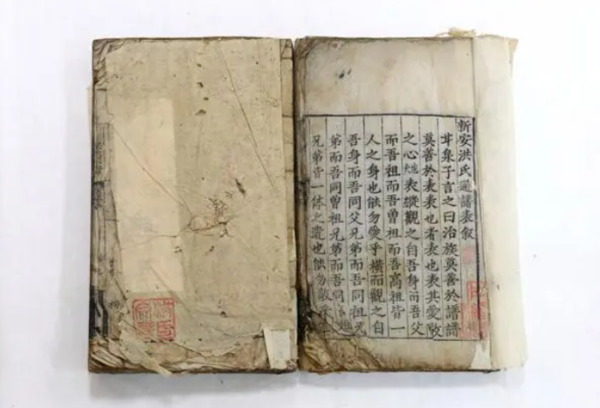 新安洪氏通譜表叙
甘泉子言之曰治族莫善於譜譜
莫善於表表也者表也表其愛敬
之心表縱觀之自吾身而吾父
而吾祖而吾曾祖而吾高祖皆一
人之身也能勿愛乎橫而觀之自
吾身而吾同父兄弟而吾同祖兄
弟而吾同曾祖兄弟而吾同
兄弟皆一体之遺也能勿敬